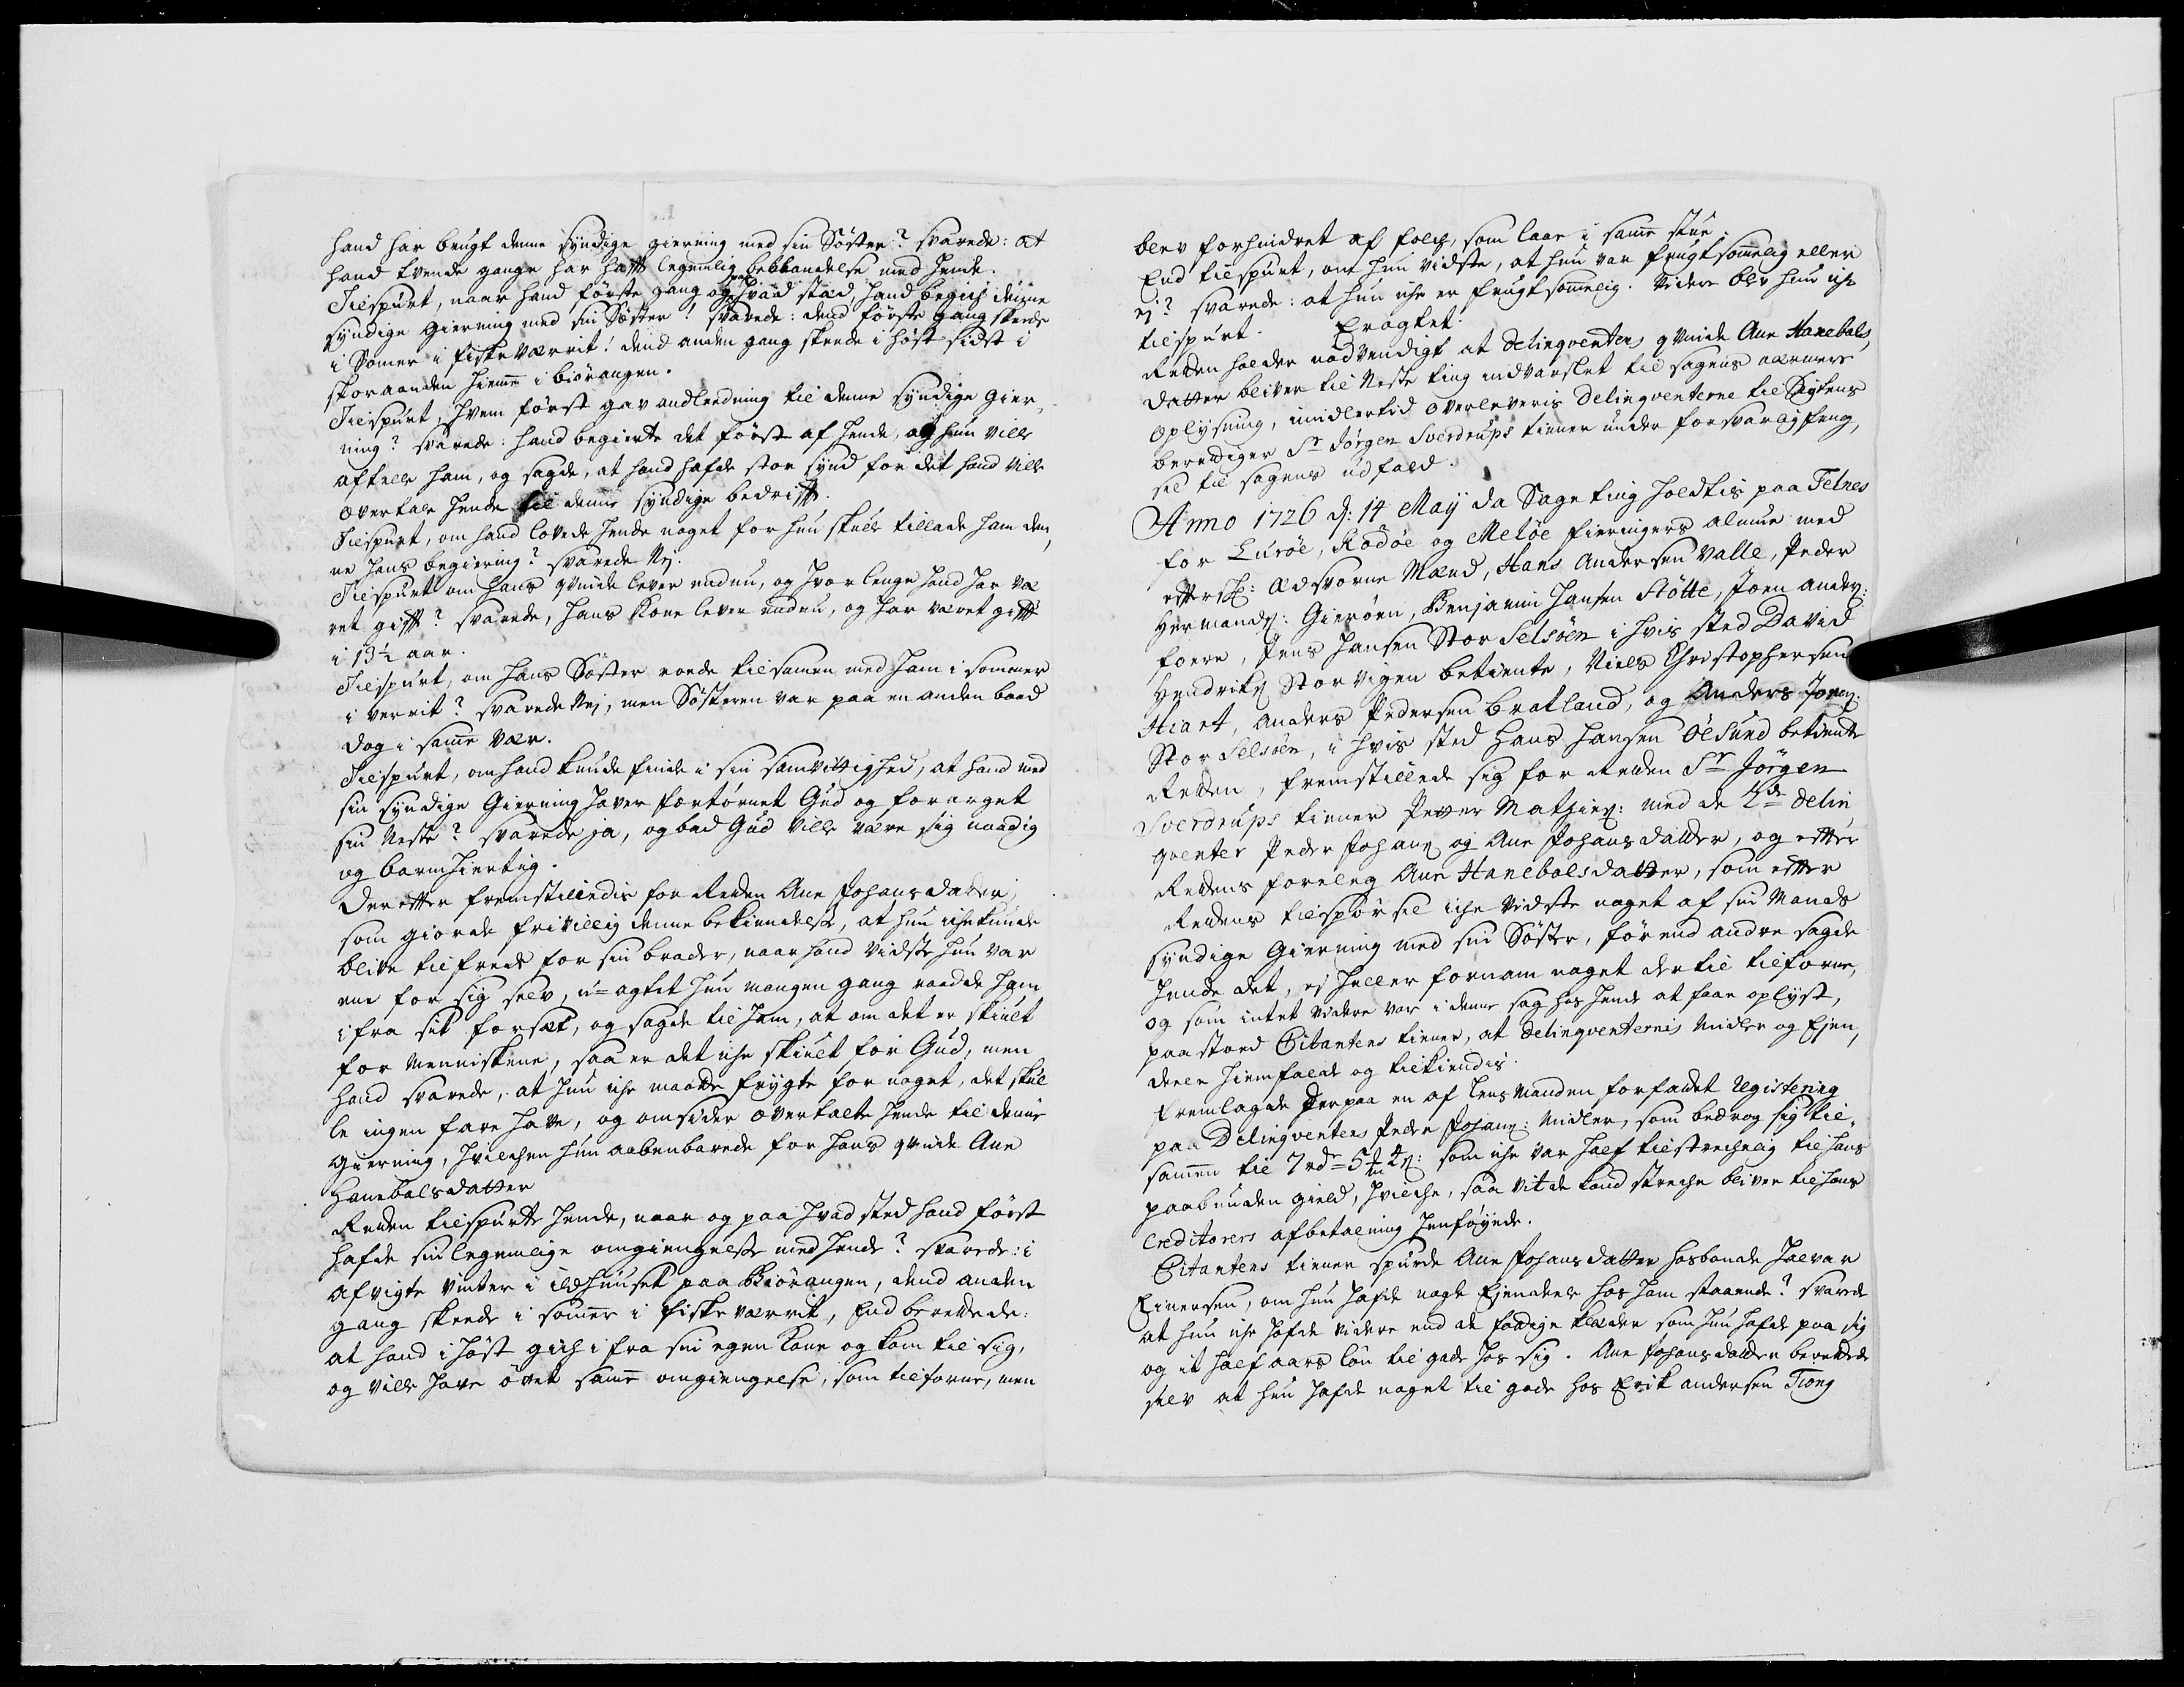 hand har brugt denne syndige gierning med sin Söster? svarede: at
hand tvende gange har hafft legemlig beblandelse med hende.
Tilspurt, naar hand förste gang og paa hvad stæd, hand begich denne
syndige gierning med sin Söster? svarede: dend förste gang skeede
i Somer i fiskeværrit! dend anden gang skeede i höst sidst i
skoraanden hieme i biörangen.
Tilspurt, hvem först gav andleedning til denne syndige gier,
ning? svarede: hand begierte det först af hende, og hun ville
aftelle ham, og sagde, at hand hafde stor synd for det hand ville
overtale hende til denne syndige bedrifft.
Tilspurt, om hand lovede hende noget for hun skulle tillade ham den,
ne hans begiering? svarede Nej.
Tilspurt om hans qvinde lever endnu, og hvor lenge hand har væ
ret gifft? svarede, hans Kone lever endnu, og har været gifft
i 13½ aar.
Tilspurt, om hans Söster roede tilsamen med ham i sommer
i verrit? svarede Nej, men Sösteren var paa en anden baad
dog i same vær.
Tilspurt, om hand kunde finde i sin samvittighed, at hand med
sin syndige Gierning haver fortörnet Gud og forarget
sin Neste? svarede ja, og bad Gud ville være sig naadig
og barmhiertig.
Der effter fremstillendis for Retten Ane Johansdatter,
som giorde frivillig denne bekiendelse, at hun iche kunde
blive tilfreds for sin broder, naar hand vidste hun var
ene for sig selv, u=agtet hun mangen gang raadde ham
ifra sit forsæt, og sagde til ham, at om det er skiult
for Menniskene, saa er det iche skiult for Gud, men
hand svarede, at hun iche maatte frygte for noget, det skul
le ingen fare have, og omsider overtalte hende til denne
gierning, hvilchen hun aabenbarede for hans qvinde Ane
Hanebalsdatter
Retten tilspurte hende, naar og paa hvad sted hand först
hafde sin legemlige omgiengelse med hende? svarede: i
afvigte vinter i ildhuuset paa Biörangen, dend anden
gang skeede i somer i fiskeværrit, End berettede:
at hand i höst gich ifra sin egen Kone og kom til sig,
og ville have övet same omgiengelse, som tilforne, men
blev forhindret af folch, som laae i same stue.
End tilspurt, om hun vidste, at hun var frugtsomelig eller
ej? svarede: at hun iche er frugtsomelig. Videre blev hun iche
tilspurt. Eragtet.
Retten holder nödvendigt at Delinqventens qvinde Ane Hanebals,
datter bliver til Neste ting indvarslet til sagens nærmere
oplysning, imidlertid overleveris Delinqventerne til Sigtens
berediger Sr Jörgen Sverdrups tiener under forsvarlig feng,
sel til sagens udfald.
Anno 1726 d: 14 Maij da Sageting holdtis paa Telnes
for Luröe, Rödöe og Melöe fieringers almue med
effterskr: Ædsvorne Mænd, Hans Andersen Valle, Peder
Hermands: Gieröen, Benjamin Hansen Stötte, Joen Anders:
foere, Jens Hansen Stor Selsöen i hvis sted David
Hendriks Storvigen betiente, Niels Christophersen
Hiart, Anders Pedersen Bratland, og Anders Jons:
Stor Selsöen, i hvis sted Hans Hansen Ölsund betiente
Retten, fremstillede sig for Retten Sr Jörgen
Sverdrups tiener Petter Mathies: med de 2de Delin
qventer Peder Johans og Ane Johansdatter, og effter
Rettens foreleg Ane Hanebalsdatter, som effter
Rettens tilspörsel iche vidste noget af sin Mands
syndige Gierning med sin Söster, förend andre sagde
hende det, ej heller fornam noget dertil tilforne,
og som intet videre var i denne sag hos hende at faae oplyst,
paastoed Citantens tiener, at Delinqventernis Midler og Ejen,
dele hiemfalde og tilkiendis.
Fremlagde derpaa en af Lensmanden forfattet Registering
paa Delinqventens Peder Johans: Midler, som bedrog sig til,
samen til 7 rdr 5 som iche var half tilstrechelig til hans
paabunden gield, hvilche, saa vit de kand streche bliver til hans
creditorers afbetalning henföyede.
Citantens tiener spurde Ane Johansdatter hosbonde Halvar
Einersen, om hun hafde nogle Ejendele hos ham staaende? svarede
at hun iche hafde videre end de fattige klæder som hun hafde paa sig
og it half aars lön til gode hos sig. Ane Johansdatter berettede
selv at hun hafde noget til gode hos Erik Andersen Tiong